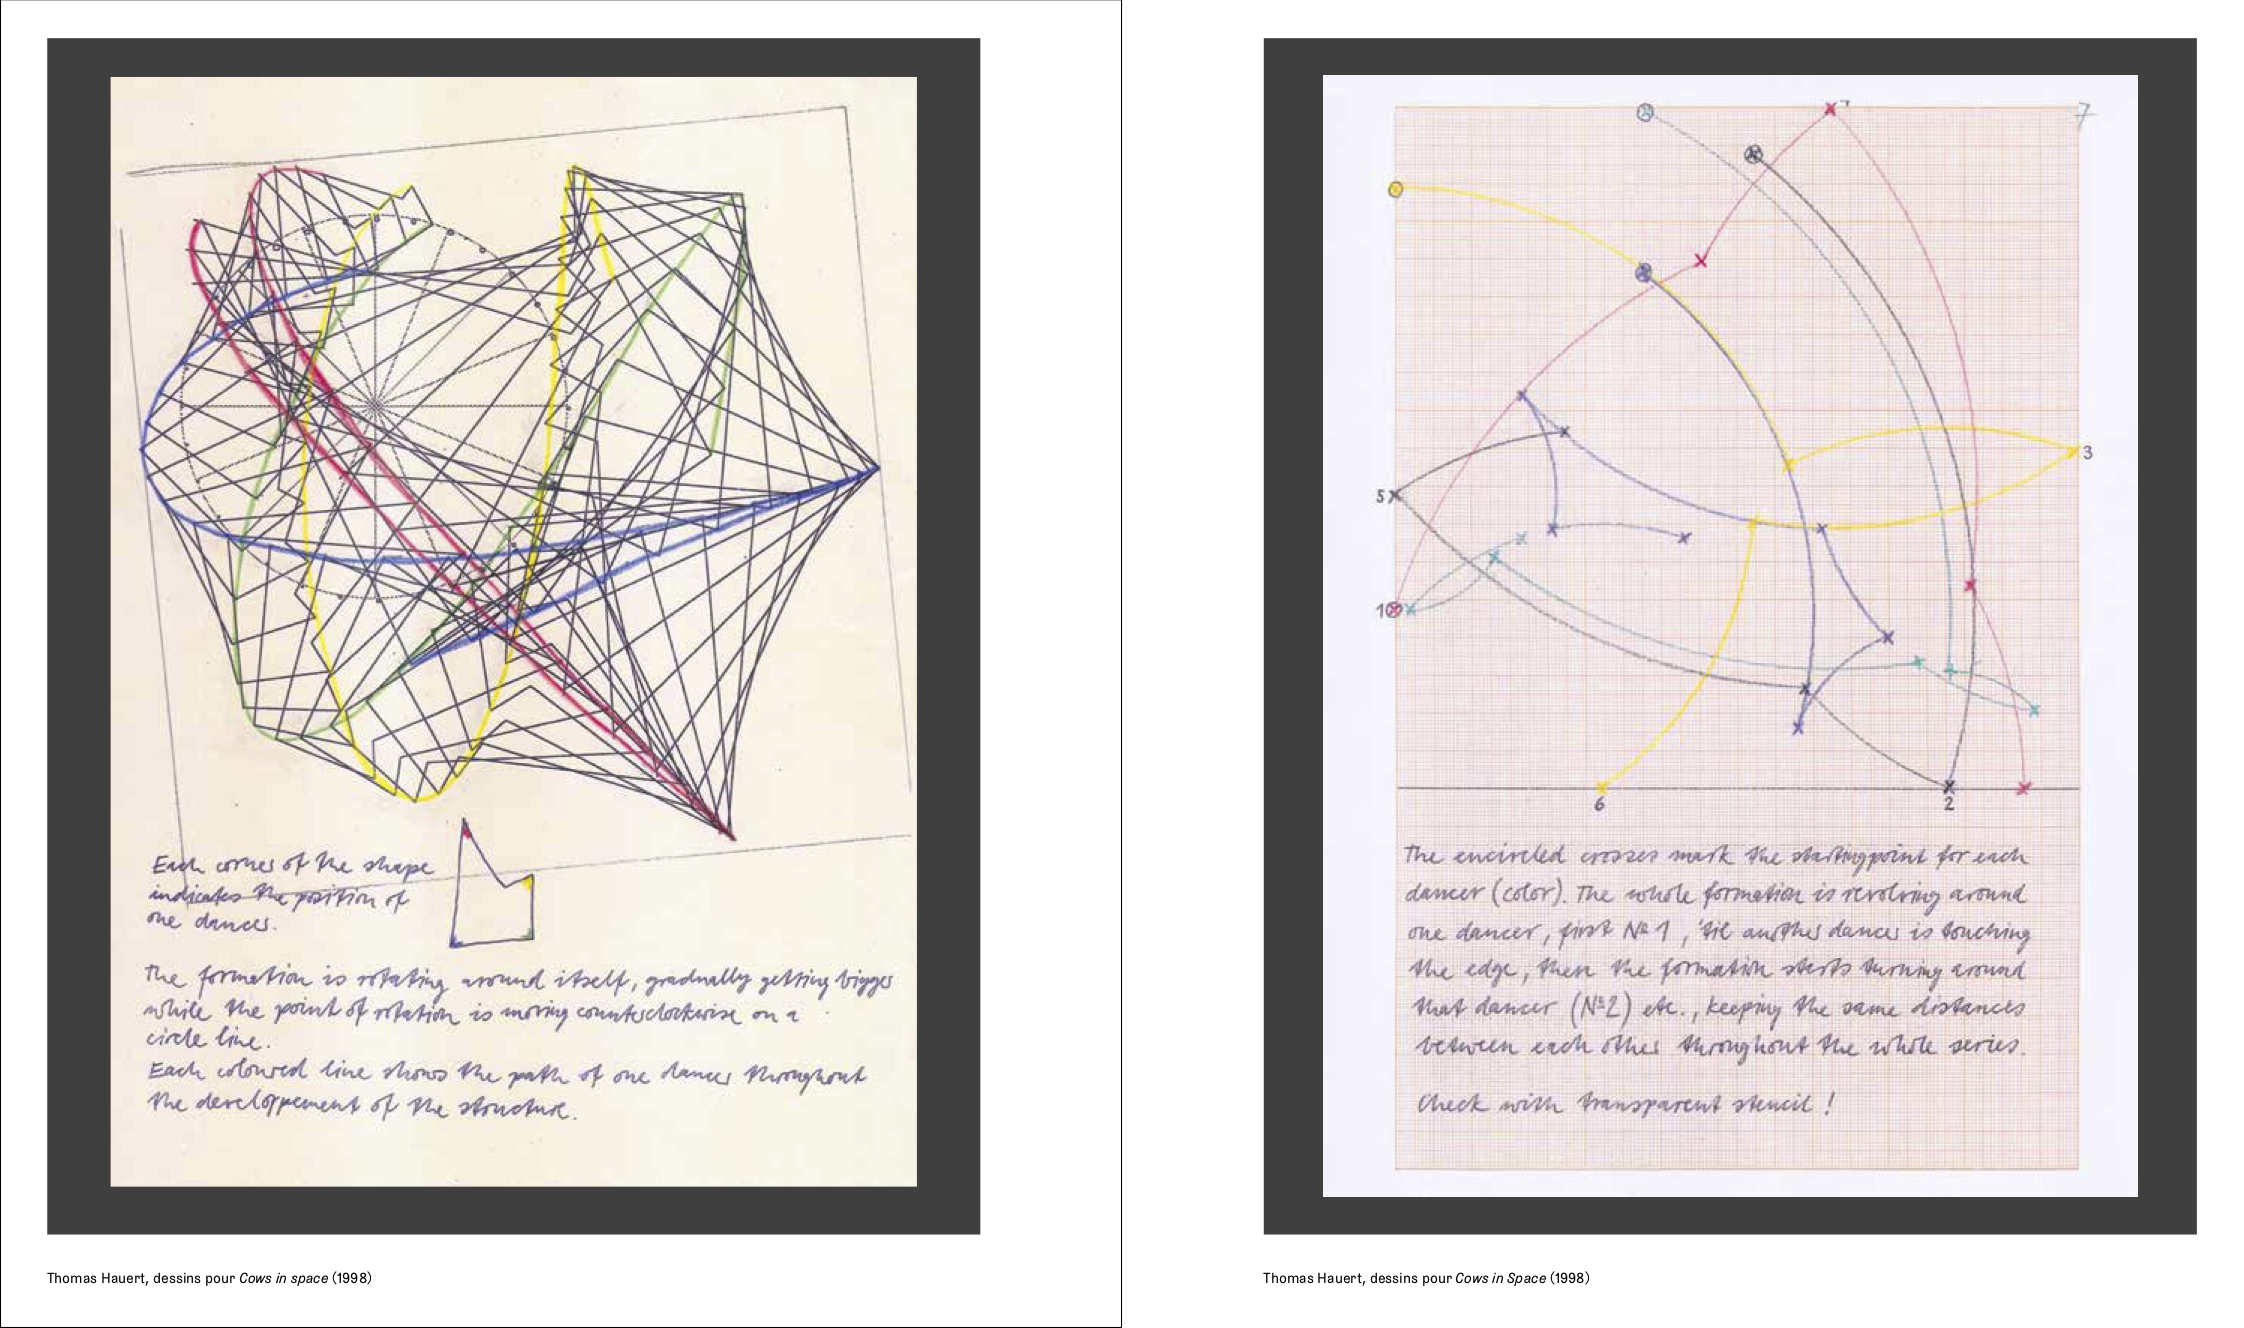 Each corner of the shape
indicates the position of
one dancer.
The formation is rotating around itself, gradually getting bigger
while the point of rotation is moving counterclockwise on a
circle line.
Each coloured line shows the path of one dancer throughout
the developpement of the structure.
Thomas Hauert, dessins pour Cows in space (1998)
7
3
5
1
6
2
The encircled crosses mark the startingpoint for each
dancer (color). The whole formation is revolving around
one dancer, first Nº 1, 'til another dancer is touching
the edge, then the formation starts turning around
that dancer (Nº2) etc., keeping the same distances
between each other throughout the whole series.
Check with transparent stencil !
Thomas Hauert, dessins pour Cows in Space (1998)